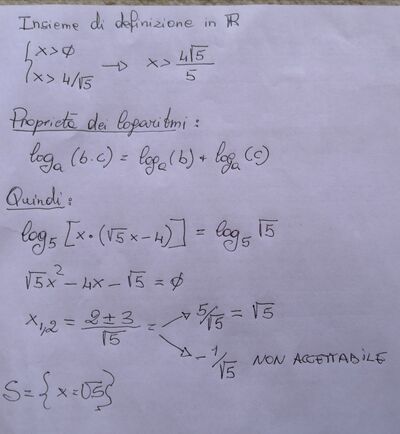 Insieme di definizione in ℝ
{x>∅
{x> 4/√5 → x> 4√5/5
Proprietà dei logaritmi:
logₐ(b·c) = logₐ(b) + logₐ(c)
Quindi:
log₅[x·(√5x-4)] = log₅√5
√5x² - 4x - √5 = ∅
x₁,₂ = (2±3)/√5 = → 5/√5 = √5
→ -1/√5 NON ACCETTABILE
S = {x=√5}